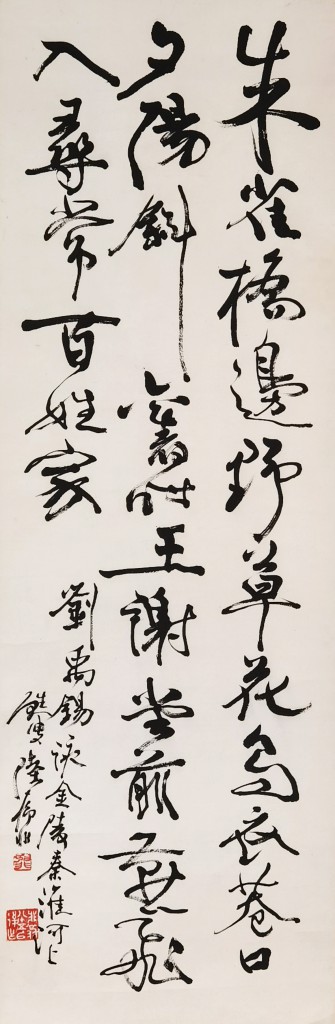 朱雀橋邊野草花烏衣巷口
夕陽斜舊時王謝堂前燕飛
入尋常百姓家
劉禹錫詠金陵秦淮河上
甦叟陸抑非